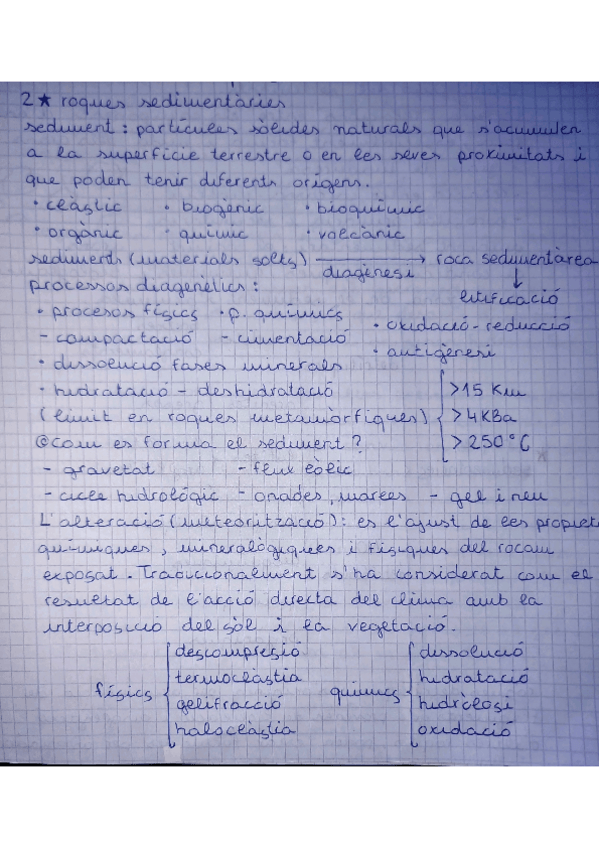 2★ roques sedimentàries
sediment: partícules sòlides naturals que s'acumulen
a la superfície terrestre o en les seves proximitats i
que poden tenir diferents orígens.
• clàstic • biogènic • bioquímic
• orgànic • químic • volcànic
sediments (materials solts) ⟶ diagènesi roca sedimentàrea
↓ litificació
processos diagenètics:
• procesos físics • p. químics
• oxidació - reducció
- compactació - cimentació
• autigènesi
• dissolució fases minerals
• hidratació - deshidratació >15 Km
(límit en roques metamòrfiques) >4KBa
@com es forma el sediment? >250°C
- gravetat - flux eòlic
- cicle hidrològic - onades, marees - gel i neu
L'alteració (meteorització): es l'ajust de les propiet
químiques, mineralògiques i físiques del rocam
exposat. Tradicionalment s'ha considerat com el
resultat de l'acció directa del clima amb la
interposició del sòl i la vegetació.
descompresió dissolució
termoclàstia hidratació
físics químics
gelifracció hidròlosi
haloclàstia oxidació